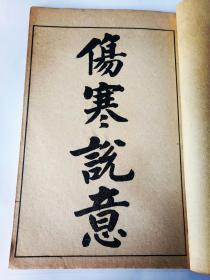 傷寒說意